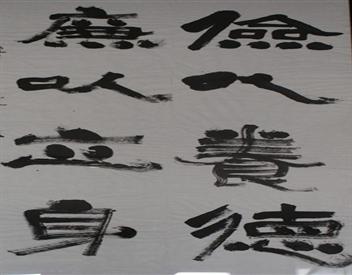 儉以養德
廉以立身